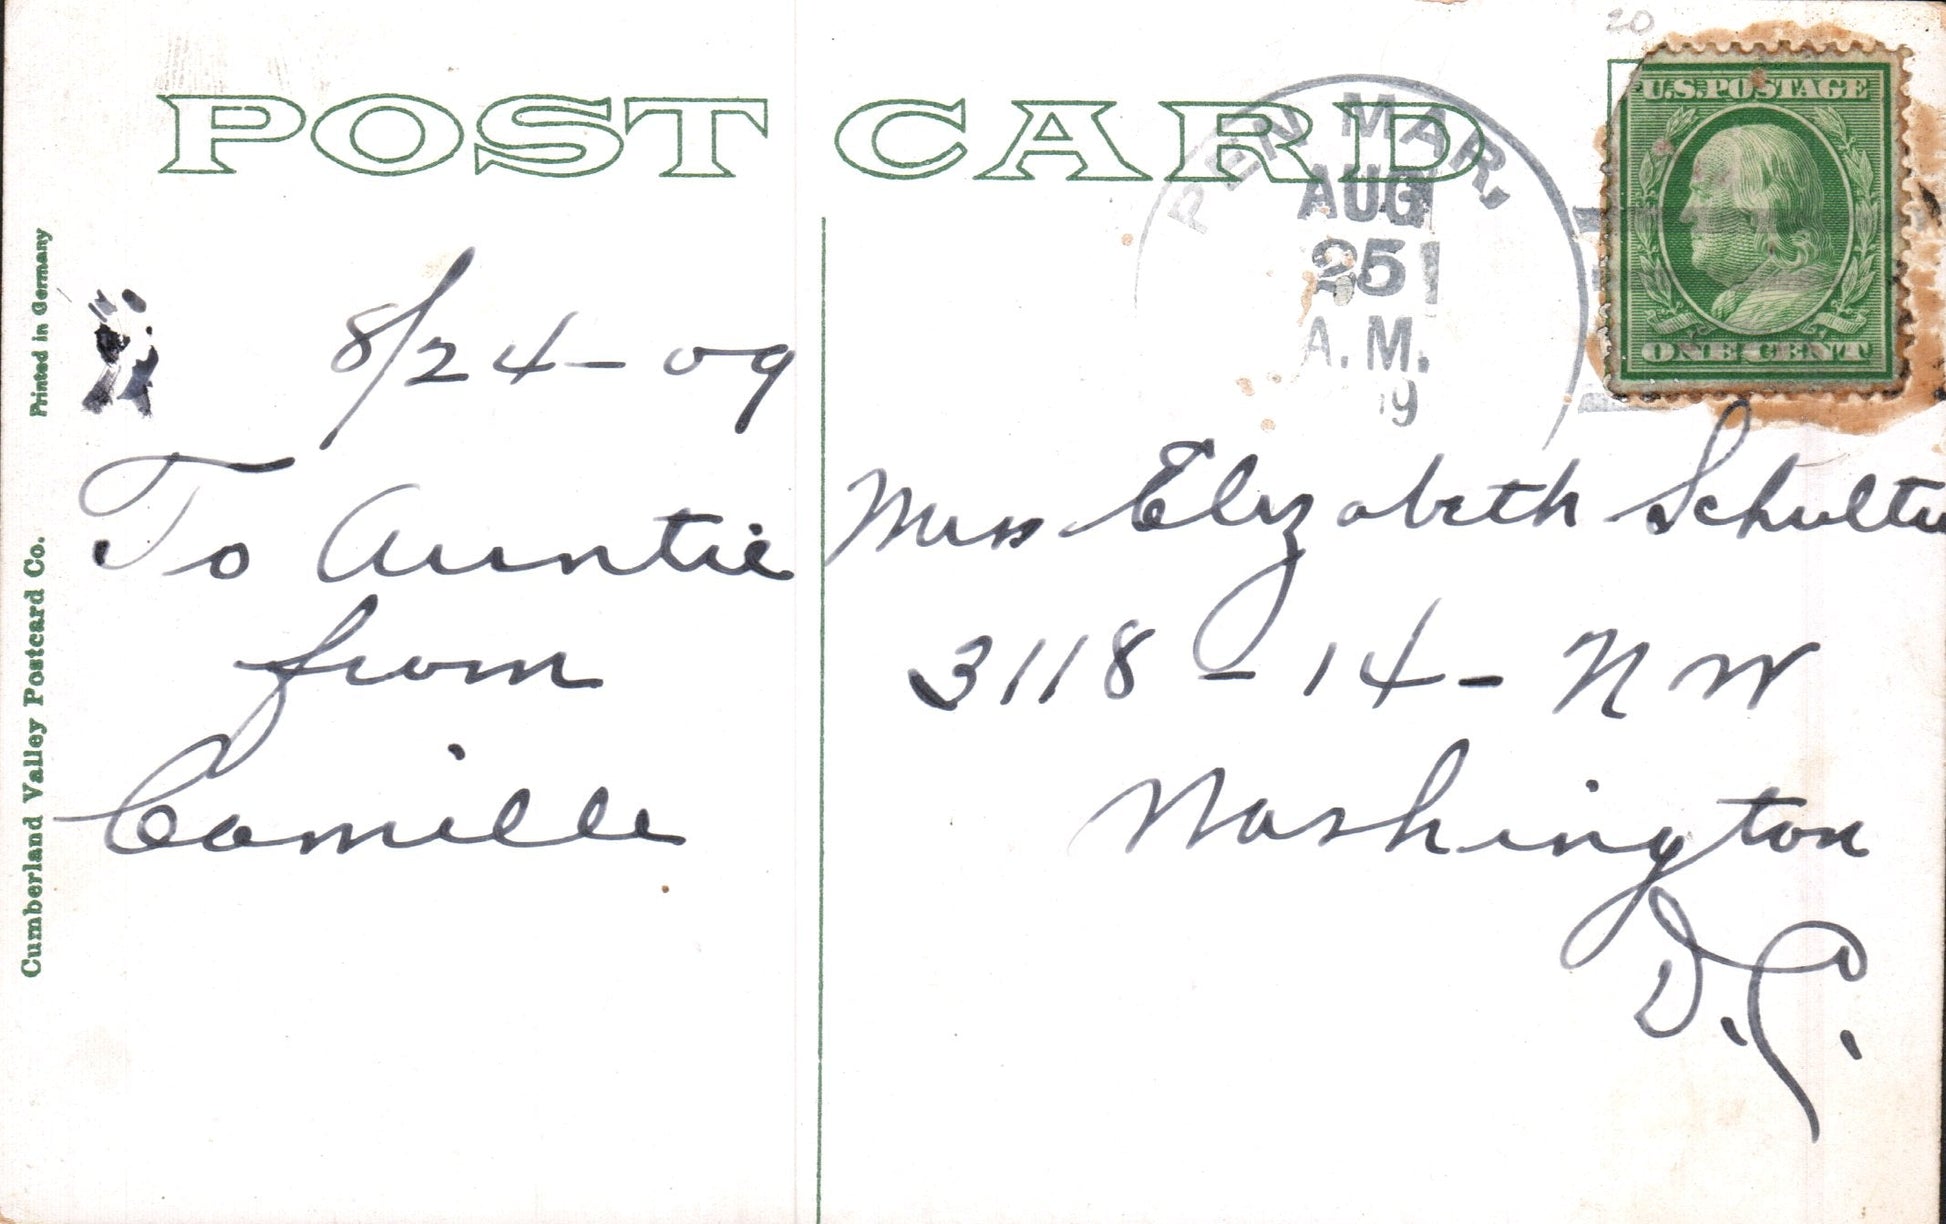 20
POST CARD
U.S. POSTAGE
ONE CENT
PEN MAR,
AUG
25
A.M.
9
8/24-09
To Auntie
from
Camille
Miss Elizabeth
3118-14-NW
Washington
D.C.
Printed in Germany
Cumberland Valley Postcard Co.